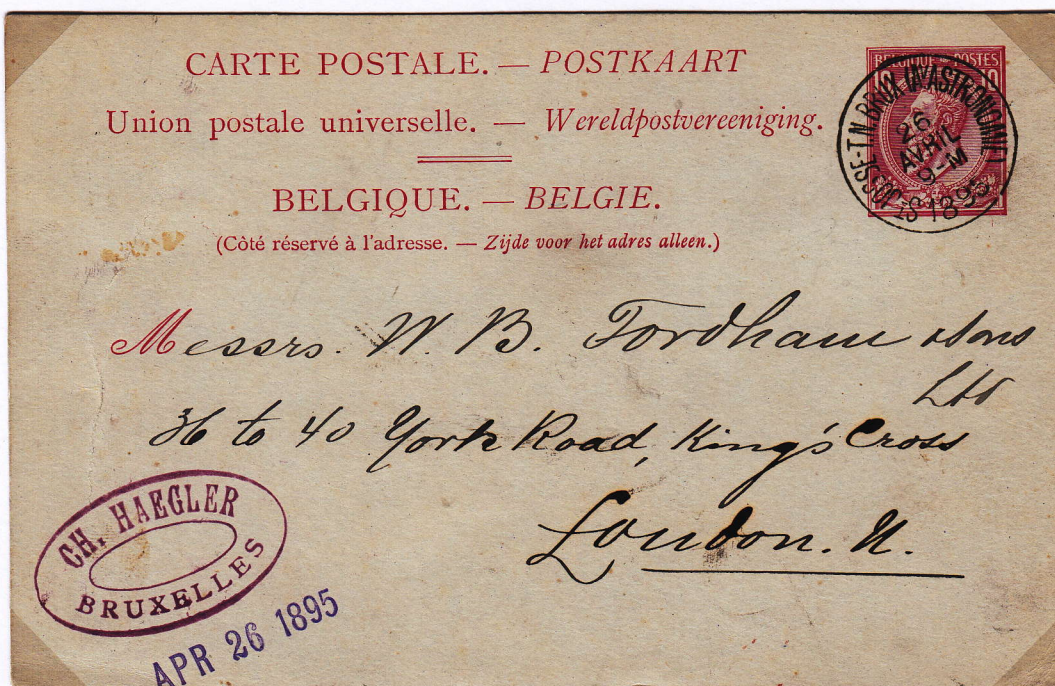 CARTE POSTALE. — POSTKAART
Union postale universelle. — Wereldpostvereeniging.
BELGIQUE. — BELGIE.
(Côté réservé à l'adresse. — Zijde voor het adres alleen.)
BELGIQUE POSTES
10 10
ST JOSSE-T.N. BRUX. (ASTRONOMIE)
26
AVRIL
9-M
1895
Messrs. W. B. Fordham & Sons
Ltd
36 to 40 York Road, King's Cross
London. N.
CH. HAEGLER
BRUXELLES
APR 26 1895